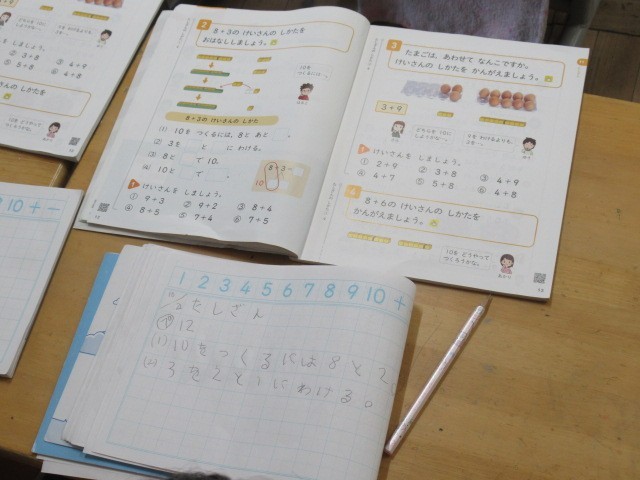 2
8+3の けいさんの しかたを
おはなししましょう。
8+3の けいさんの しかた
(1) 10を つくるには、8と あと 。
(2) 3を と に わける。
(3) 8と で 10。
(4) 10と
8+3=
10
けいさんを しましょう。
① 9+3 ② 9+2 ③ 8+4
④ 8+5 ⑤ 7+4 ⑥ 7+5
3
たまごは、あわせて なんこですか。
けいさんの しかたを かんがえましょう。
3+9
けいさんを しましょう。
① 2+9 ② 3+8 ③ 4+9
④ 4+7 ⑤ 5+8 ⑥ 4+8
4
8+6の けいさんの しかたを
かんがえましょう。
10を どうやって
つくろうかな。
しましょう。
③ 4+9
⑥ 4+8
しかたを
10 + −
1 2 3 4 5 6 7 8 9 10 +
たしざん
12
(1) 10をつくるには8と2
(2) 3を2と1にわける。